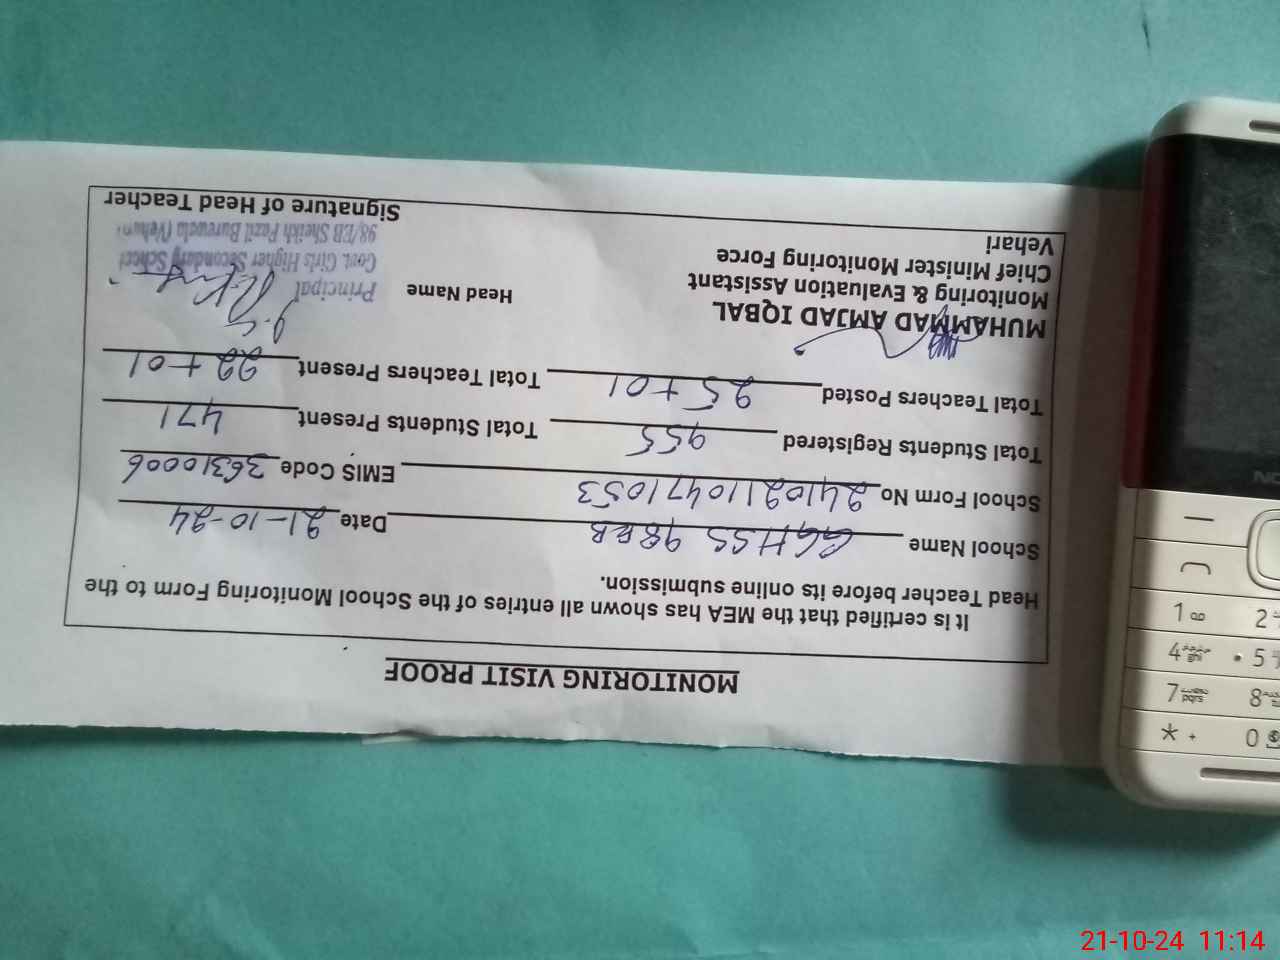 MONITORING VISIT PROOF
It is certified that the MEA has shown all entries of the School Monitoring Form to the
Head Teacher before its online submission.
School Name GGHSS 98EB Date 21-10-24
School Form No 24102110471053 EMIS Code 36310006
Total Students Registered 955 Total Students Present 471
Total Teachers Posted 25+01 Total Teachers Present 22+01
MUHAMMAD AMJAD IQBAL
Monitoring & Evaluation Assistant
Chief Minister Monitoring Force
Vehari
Head Name
Principal
Govt. Girls Higher Secondary School
98/EB Sheikh Fazil Burewala (Vehari)
Signature of Head Teacher
1
2
4
5
7
8
* +
0
21-10-24 11:14